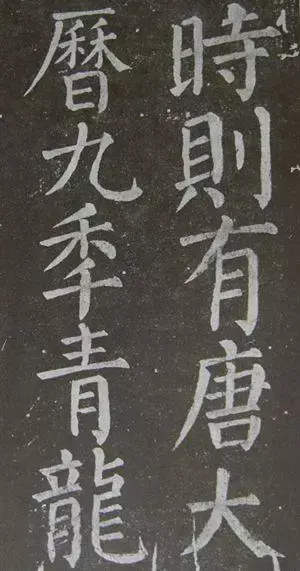 時則有唐大
曆九季青龍